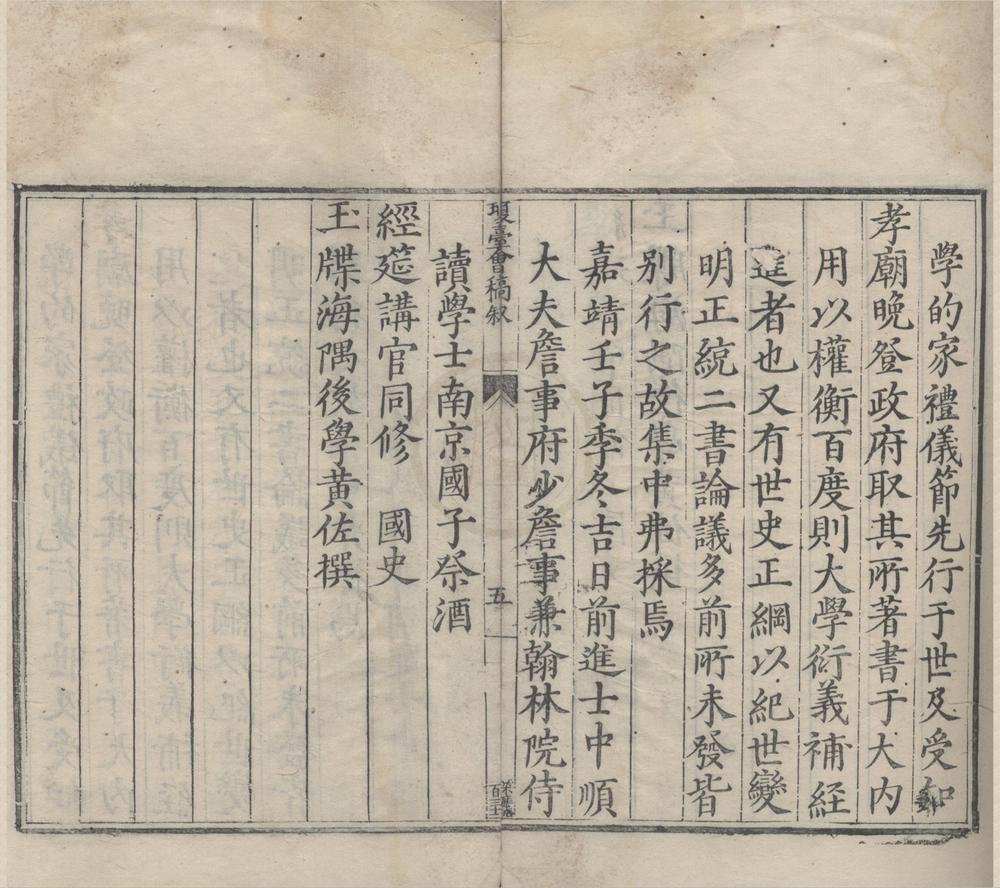 學的家禮儀節先行于世及受知
孝廟晚登政府取其所著書于大内
用以權衡百度則大學衍義補經
進者也又有世史正綱以紀世變
明正統二書論議多前所未發皆
别行之故集中弗採焉
嘉靖壬子季冬吉日前進士中順
大夫詹事府少詹事兼翰林院侍
瓊臺會稿叙
五
讀學士南京國子祭酒
經筵講官同修 國史
玉牒海隅後學黄佐撰